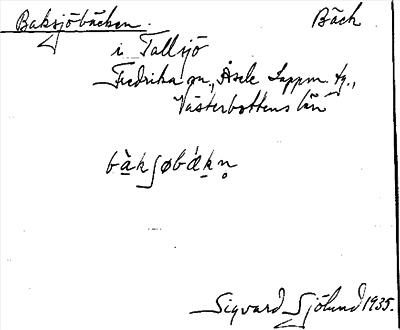 Baksjöbäcken. Bäck
i Tallsjö
Fredrika sn., Åsele Lappm. tg.,
Västerbottens län
bàkʃøbǽkn̥
Sigvard Sjölund 1935.